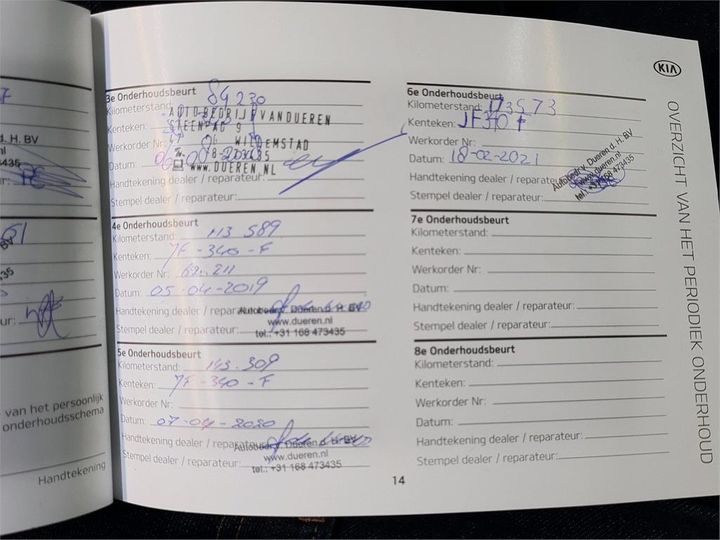 KIA
OVERZICHT VAN HET PERIODIEK ONDERHOUD
d. H. BV
435
BV
435
van het persoonlijk
onderhoudsschema
Handtekening
3e Onderhoudsbeurt
Kilometerstand: 84 230
AUTOBEDRIJF VAN DUEREN
Kenteken:
STEENPAD 9
Werkorder Nr:
WILLEMSTAD
Datum:
WWW.DUEREN.NL
Handtekening dealer / reparateur:
Stempel dealer / reparateur:
4e Onderhoudsbeurt
Kilometerstand: 113 589
Kenteken: JF-340-F
Werkorder Nr: 62.211
Datum: 05-04-2019
Handtekening dealer / reparateur:
Autobedr. v. Dueren d. H. BV
Stempel dealer / reparateur:
www.dueren.nl
tel.: +31 168 473435
5e Onderhoudsbeurt
Kilometerstand: 143.309
Kenteken: JF-340-F
Werkorder Nr:
Datum: 07-04-2020
Handtekening dealer / reparateur:
Autobedr. v. Dueren d. H. BV
Stempel dealer / reparateur:
www.dueren.nl
tel.: +31 168 473435
6e Onderhoudsbeurt
Kilometerstand: 173573
Kenteken: JF340F
Werkorder Nr:
Datum: 18-02-2021
Handtekening dealer / reparateur:
Stempel dealer / reparateur:
Autobedr. v. Dueren d. H. BV
www.dueren.nl
tel.: +31 168 473435
7e Onderhoudsbeurt
Kilometerstand:
Kenteken:
Werkorder Nr:
Datum:
Handtekening dealer / reparateur:
Stempel dealer / reparateur:
8e Onderhoudsbeurt
Kilometerstand:
Kenteken:
Werkorder Nr:
Datum:
Handtekening dealer / reparateur:
Stempel dealer / reparateur:
14